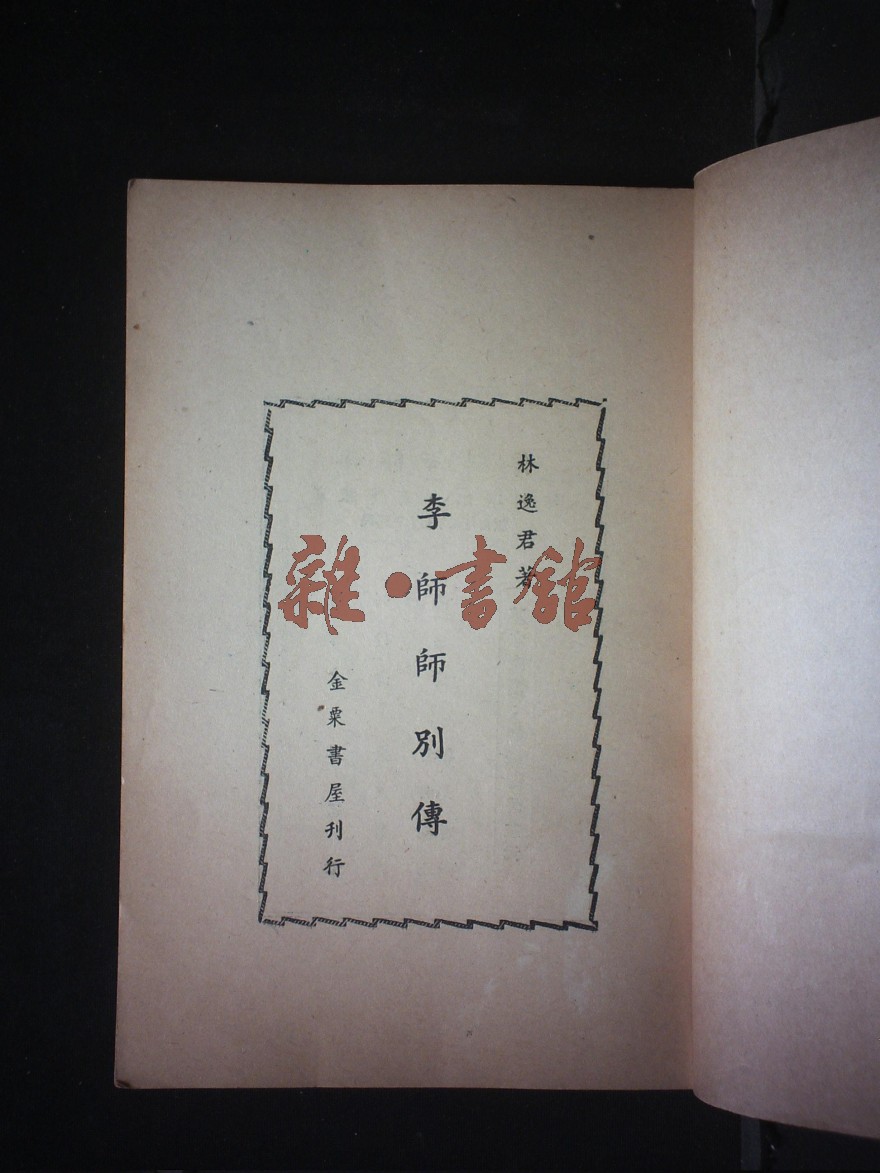 林逸君著
李師師別傳
金粟書屋刊行
雜·書館